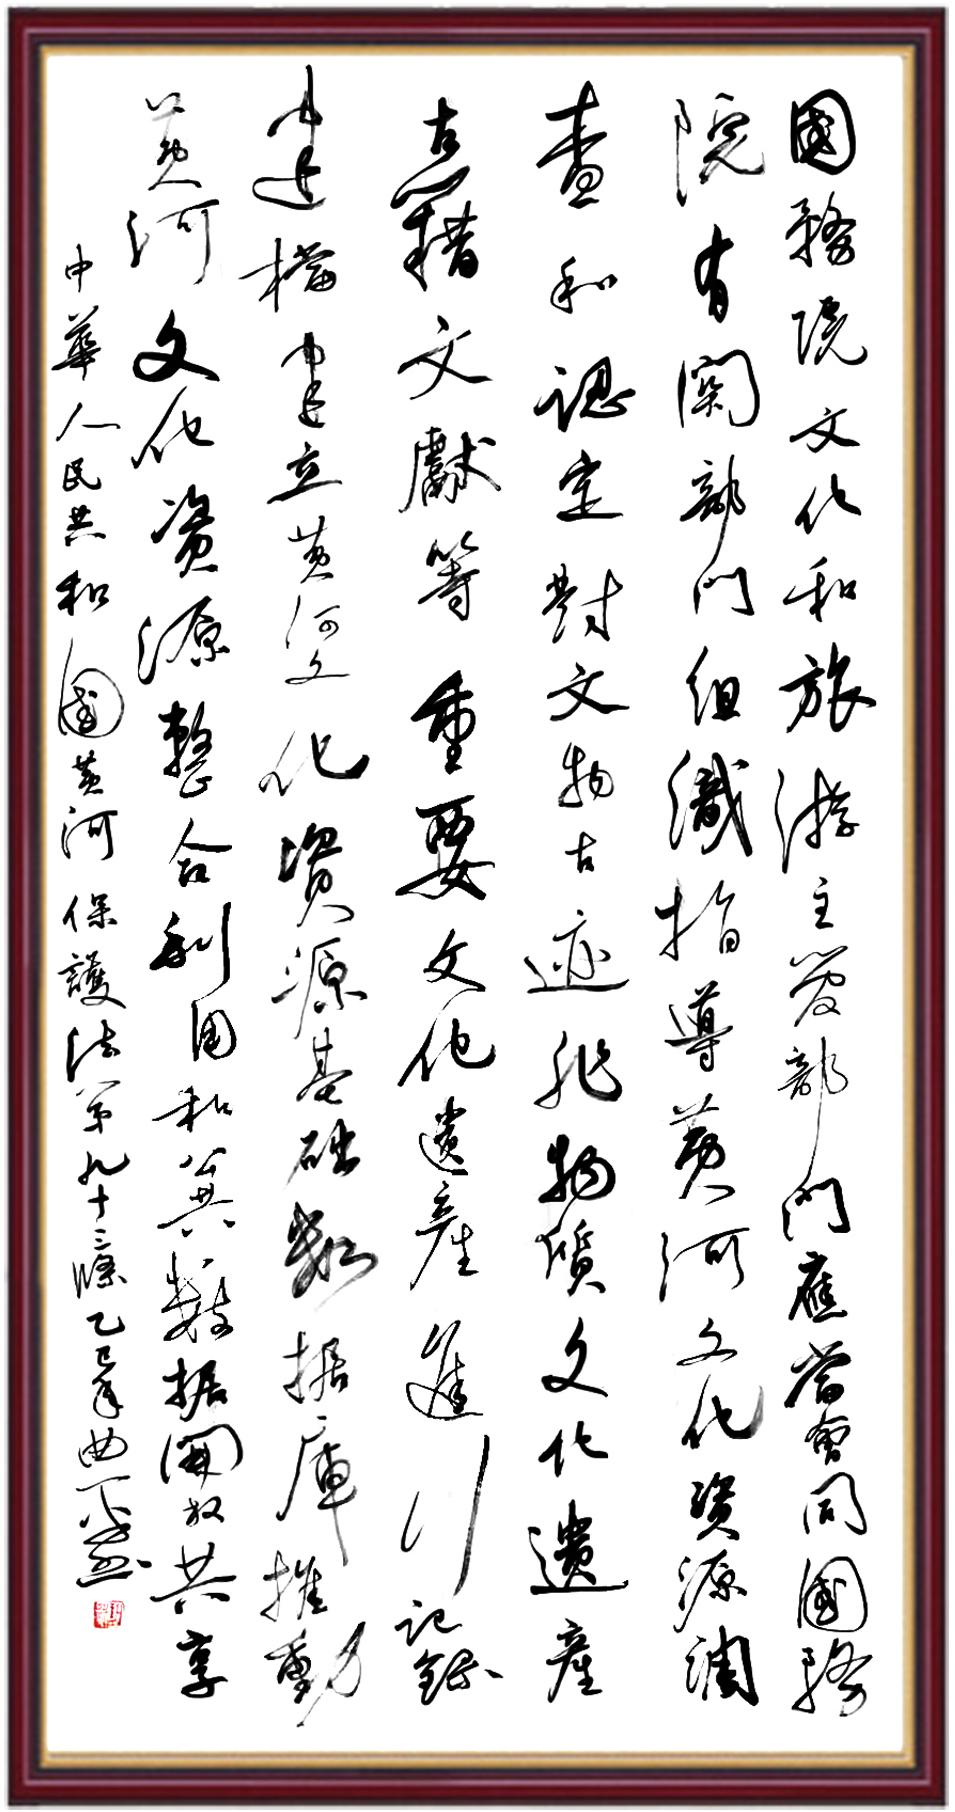 國務院文化和旅游主管部門應當會同國務
院有關部門組織指導黄河文化資源調
查和認定對文物古迹非物質文化遺產
古籍文獻等重要文化遺產進行記録
建檔建立黄河文化資源基础數据庫推動
黄河文化資源整合利用和公共數据開放共享
中華人民共和國黄河保護法第九十三條乙巳年曲